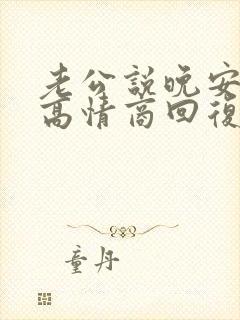 老公說晚安
高情商回復
童丹